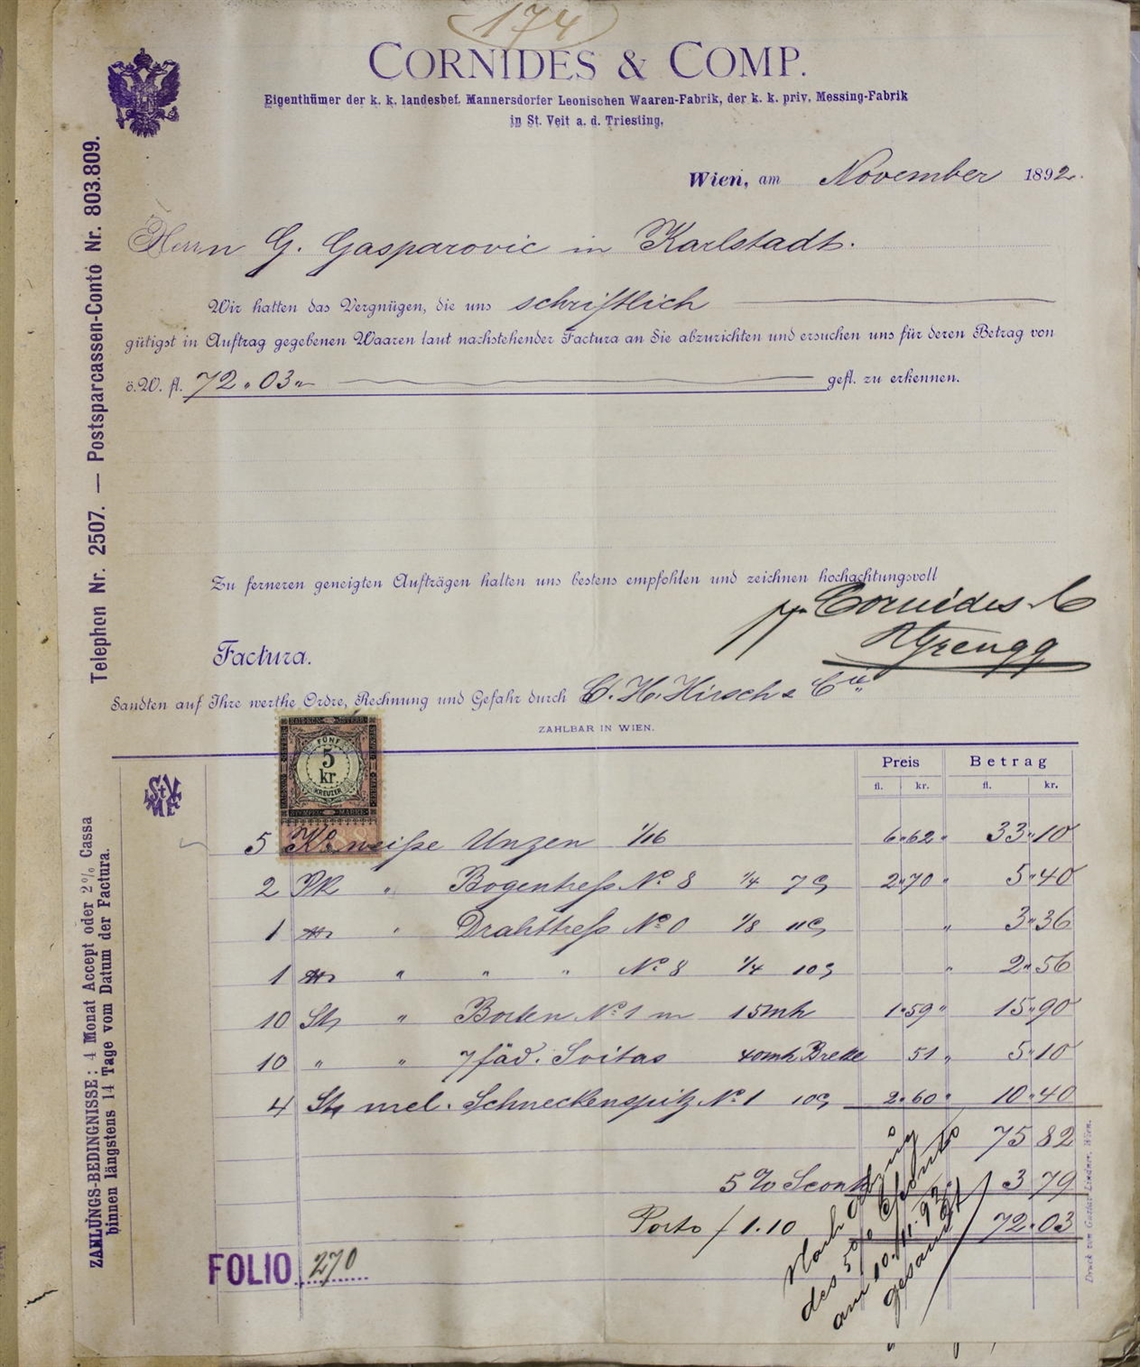 174
CORNIDES & COMP.
Eigenthümer der k. k. landesbef. Mannersdorfer Leonischen Waaren-Fabrik, der k. k. priv. Messing-Fabrik
in St. Veit a. d. Triesting.
Wien, am November 1892.
Herrn G. Gasparovic in Karlstadt.
Wir hatten das Vergnügen, die uns schriftlich
gütigst in Auftrag gegebenen Waaren laut nachstehender Factura an Sie abzurichten und ersuchen uns für deren Betrag von
ö.W. fl. 72.03 gefl. zu erkennen.
Zu ferneren geneigten Aufträgen halten uns bestens empfohlen und zeichnen hochachtungsvoll
Cornides & C
Factura.
Sandten auf Ihre werthe Ordre, Rechnung und Gefahr durch C. H. Hirsch & Cie
ZAHLBAR IN WIEN.
Preis Betrag
fl. kr. fl. kr.
FÜNF
5
kr.
KREUZER
5 Ko weiße Unzen 1/16 6.62 33.10
2 " Bogentreß No 8 1/4 2.70 5.40
1 " Drahttreß No 0 1/8 3.36
1 " " " No 8 1/4 2.56
10 St " Borten No 1 15 1.59 15.90
10 " " 7 fäd. 40 51 5.10
4 St mel. Schneckenspitz No 1 2.60 10.40
75 82
5 % Sconto 3 79
Porto / 1.10 72.03
Nach Abzug
des 5% Sconto
am 10./11. 92
gesandt
FOLIO 270
Telephon Nr. 2507. — Postsparcassen-Conto Nr. 803.809.
ZAHLUNGS-BEDINGNISSE: 4 Monat Accept oder 2% Cassa
binnen längstens 14 Tage vom Datum der Factura.